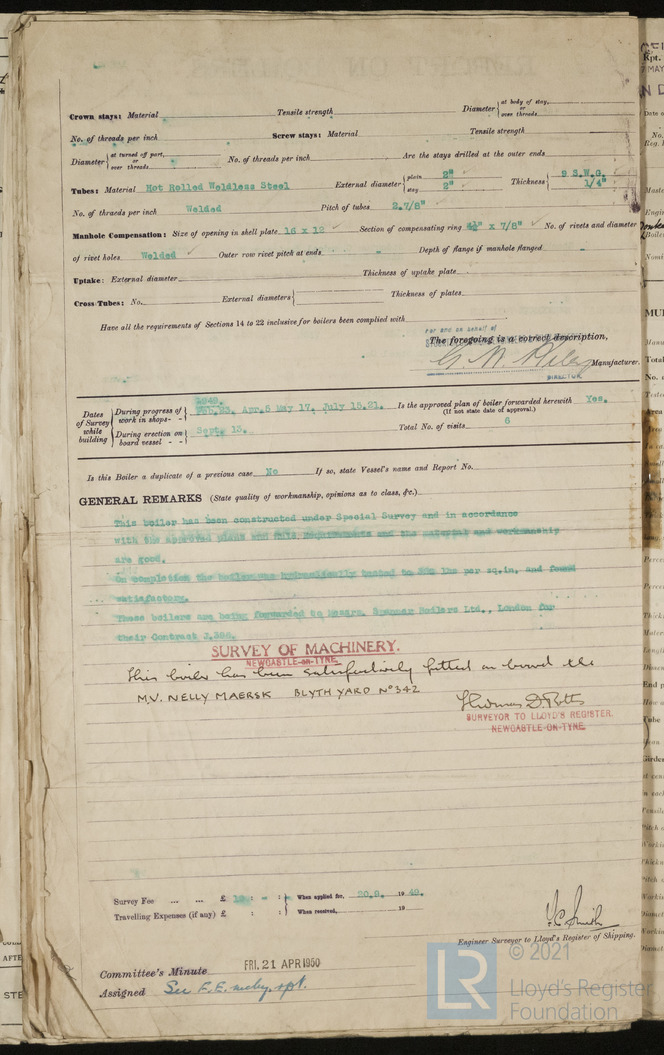 Crown stays: Material Tensile strength Diameter { at body of stay, or over threads
No. of threads per inch Screw stays: Material Tensile strength
Diameter { at turned off part, or over threads No. of threads per inch Are the stays drilled at the outer ends
Tubes: Material Hot Rolled Weldless Steel External diameter { plain 2" stay 2" Thickness { 9 S.W.G. 1/4"
No. of threads per inch Welded Pitch of tubes 2.7/8"
Manhole Compensation: Size of opening in shell plate 16 x 12 Section of compensating ring x 7/8" No. of rivets and diameter
of rivet holes Welded Outer row rivet pitch at ends - Depth of flange if manhole flanged
Uptake: External diameter Thickness of uptake plate
Cross Tubes: No. External diameters { Thickness of plates
Have all the requirements of Sections 14 to 22 inclusive for boilers been complied with
For and on behalf of
The foregoing is a correct description,
Manufacturer.
DIRECTOR
Dates of Survey while building { During progress of work in shops - - 1949. 23, Apr.5 May 17, July 15.21. Is the approved plan of boiler forwarded herewith Yes.
(If not state date of approval.)
During erection on board vessel - - Sept. 13. Total No. of visits 6
Is this Boiler a duplicate of a previous case No If so, state Vessel's name and Report No.
GENERAL REMARKS (State quality of workmanship, opinions as to class, &c.)
This boiler has been constructed under Special Survey and in accordance
with the approved plans and the material and workmanship
are good.
On completion the boiler was hydraulically tested to lbs per sq.in. and found
satisfactory.
These boilers are being forwarded to Messrs. Spanner Boilers Ltd., London for
their Contract
SURVEY OF MACHINERY.
NEWCASTLE-ON-TYNE.
This boiler has been satisfactorily fitted on board the
M.V. NELLY MAERSK BLYTH YARD No 342
SURVEYOR TO LLOYD'S REGISTER.
NEWCASTLE-ON-TYNE.
Survey Fee ... ... £ : - : - } When applied for, 20.9. 19 49.
Travelling Expenses (if any) £ : : When received, 19
Engineer Surveyor to Lloyd's Register of Shipping.
Committee's Minute FRI. 21 APR 1950
Assigned See F.E. rpt.
© 2021
LR
Lloyd's Register
Foundation